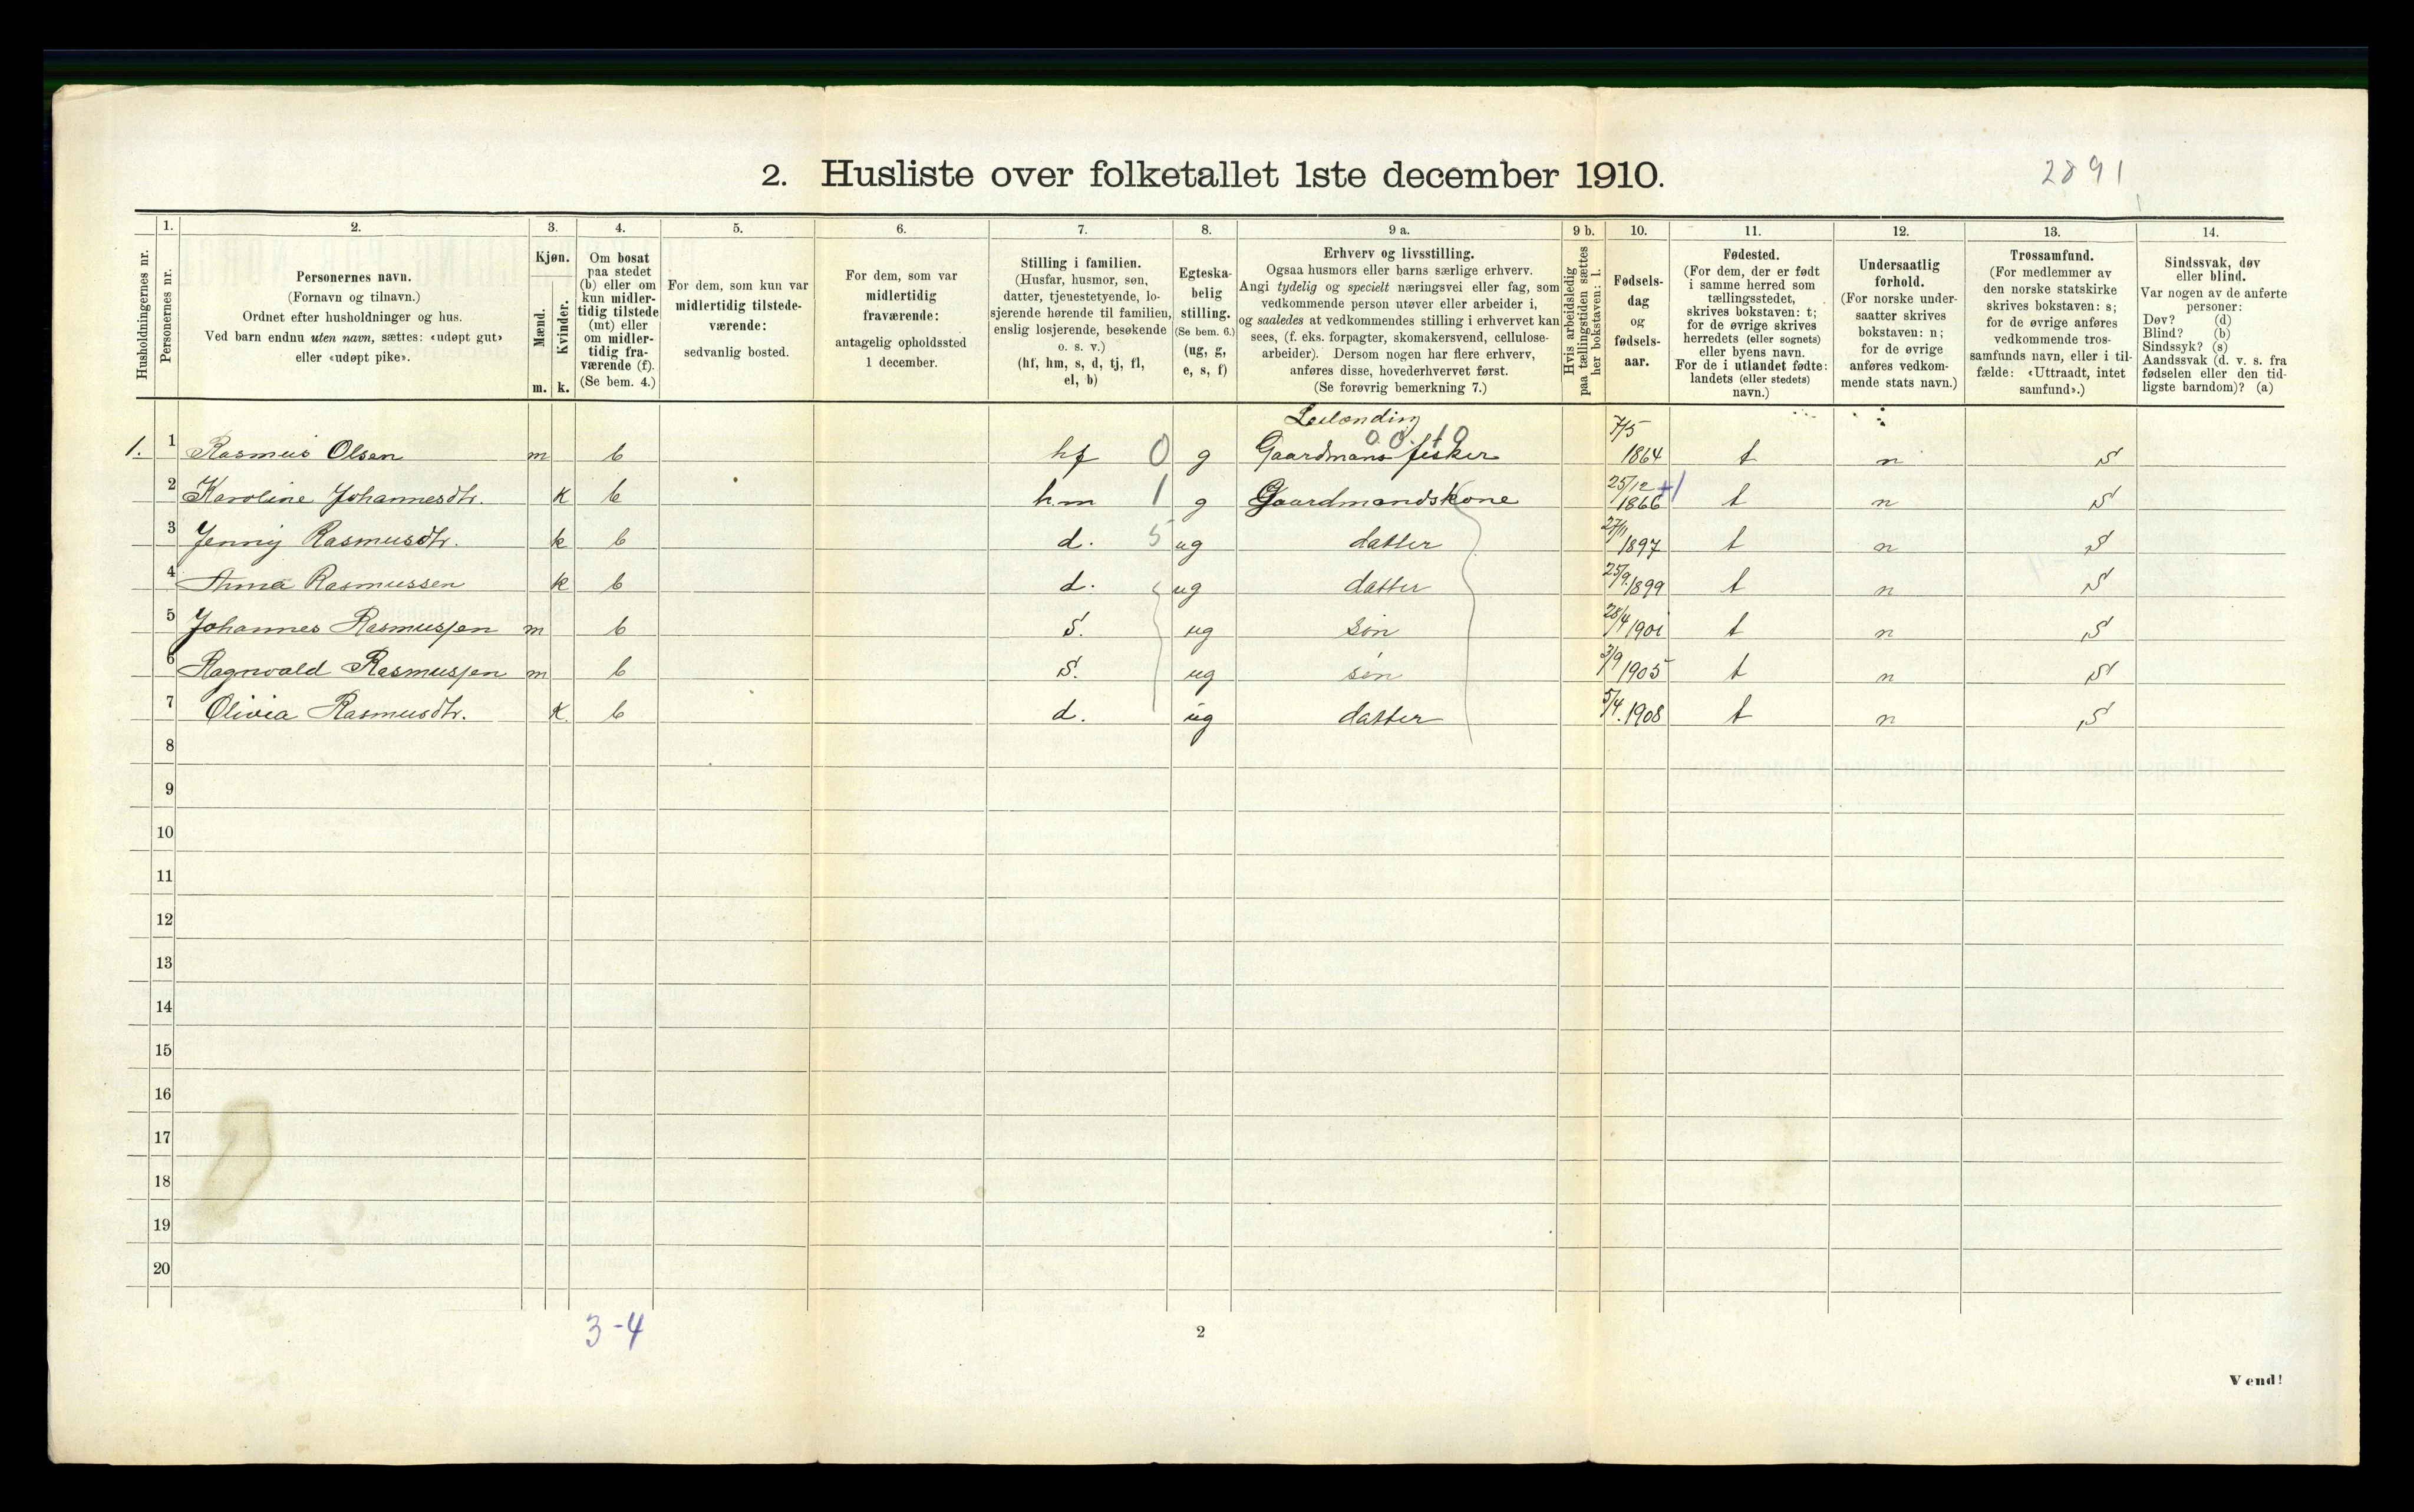 2. Husliste over folketallet 1ste december 1910.
2891
Husholdningernes nr.
1.
Personernes nr.
2.
Personernes navn.
(Fornavn og tilnavn.)
Ordnet efter husholdninger og hus.
Ved barn endnu uten navn, sættes: «udøpt gut»
eller «udøpt pike».
3.
Kjøn.
Mænd.
m.
Kvinder.
k.
4.
Om bosat
paa stedet
(b) eller om
kun midler-
tidig tilstede
(mt) eller
om midler-
tidig fra-
værende (f).
(Se bem. 4.)
5.
For dem, som kun var
midlertidig tilstede-
værende:
sedvanlig bosted.
6.
For dem, som var
midlertidig
fraværende:
antagelig opholdssted
1 december.
7.
Stilling i familien.
(Husfar, husmor, søn,
datter, tjenestetyende, lo-
sjerende hørende til familien,
enslig losjerende, besøkende
o. s. v.)
(hf, hm, s, d, tj, fl,
el, b)
8.
Egteska-
belig
stilling.
(Se bem. 6.)
(ug, g,
e, s, f)
9 a.
Erhverv og livsstilling.
Ogsaa husmors eller barns særlige erhverv.
Angi tydelig og specielt næringsvei eller fag, som
vedkommende person utøver eller arbeider i,
og saaledes at vedkommendes stilling i erhvervet kan
sees, (f. eks. forpagter, skomakersvend, cellulose-
arbeider). Dersom nogen har flere erhverv,
anføres disse, hovederhvervet først.
(Se forøvrig bemerkning 7.)
9 b.
Hvis arbeidsledig
paa tællingstiden sættes
her bokstaven: l.
10.
Fødsels-
dag
og
fødsels-
aar.
11.
Fødested.
(For dem, der er født
i samme herred som
tællingsstedet,
skrives bokstaven: t;
for de øvrige skrives
herredets (eller sognets)
eller byens navn.
For de i utlandet fødte:
landets (eller stedets)
navn.)
12.
Undersaatlig
forhold.
(For norske under-
saatter skrives
bokstaven: n;
for de øvrige
anføres vedkom-
mende stats navn.)
13.
Trossamfund.
(For medlemmer av
den norske statskirke
skrives bokstaven: s;
for de øvrige anføres
vedkommende tros-
samfunds navn, eller i til-
fælde: «Uttraadt, intet
samfund».)
14.
Sindssvak, døv
eller blind.
Var nogen av de anførte
personer:
Døv? (d)
Blind? (b)
Sindssyk? (s)
Aandssvak (d. v. s. fra
fødselen eller den tid-
ligste barndom)? (a)
Leilænding
1. 1 Rasmus Olsen m b hf 0 g Gaardmans fisker 7/5 1864 t n S
2 Karoline Johannesdtr. k b h.m 1 g Gaardmandskone 25/12 1866 +1 t n S
3 Jenny Rasmusdtr. k b d. 5 ug datter 27/11 1897 t n S
4 Anna Rasmussen k b d. ug datter 25/9. 1899 t n S
5 Johannes Rasmussen m b S. ug Søn 28/4 1901 t n S
6 Ragnvald Rasmussen m b S. ug søn 3/9 1905 t n S
7 Olivia Rasmusdtr. K. b d. ug datter 5/4. 1908 t n S
8
9
10
11
12
13
14
15
16
17
18
19
20
3-4
2
Vend!